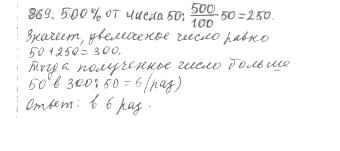 869. 500% от числа 50: 500/100 · 50 = 250.
Значит, увеличеное число равно
50 + 250 = 300.
Тогда полученное число больше
50 в 300 : 50 = 6 (раз)
Ответ: в 6 раз.